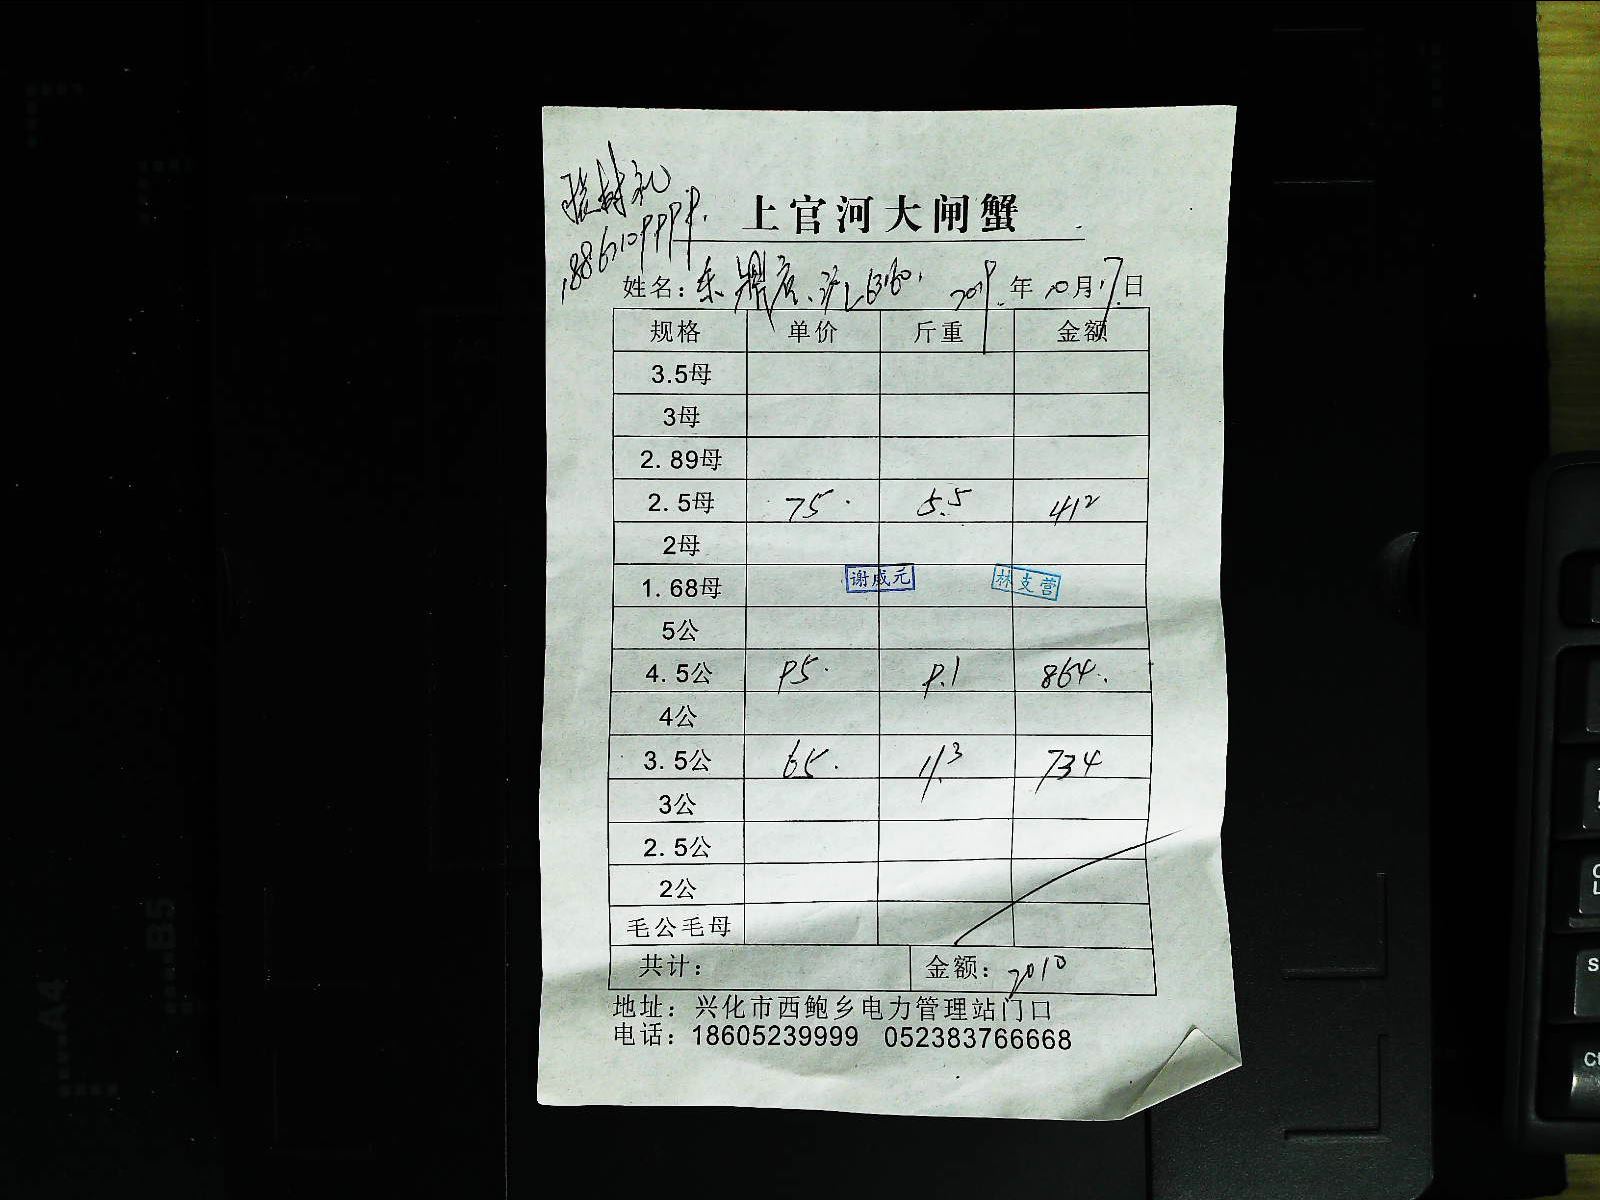 上官河大闸蟹
姓名: 2019年10月17日
规格 单价 斤重 金额
3.5母
3母
2.89母
2.5母 75. 5.5 412
2母
1.68母 谢成元 林支营
5公
4.5公 95. 9.1 864.
4公
3.5公 65. 11.3 734
3公
2.5公
2公
毛公毛母
共计: 金额: 2010
地址: 兴化市西鲍乡电力管理站门口
电话: 18605239999 052383766668
A4
B5